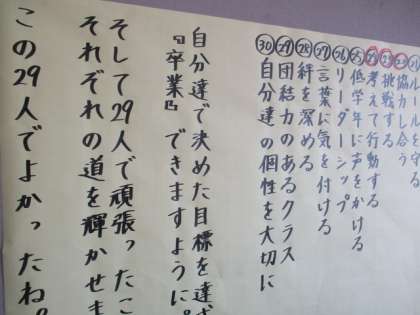 ルールを守る
㉒協力し合う
㉓挑戦する
㉔考えて行動する
㉕低学年に声をかける
㉖リーダーシップ
㉗言葉に気を付ける
㉘絆を深める
㉙団結力のあるクラス
㉚自分達の個性を大切に
自分達で決めた目標を達
『卒業』できますように。
そして29人で頑張ったこ
それぞれの道を輝かせま
この29人でよかったね。